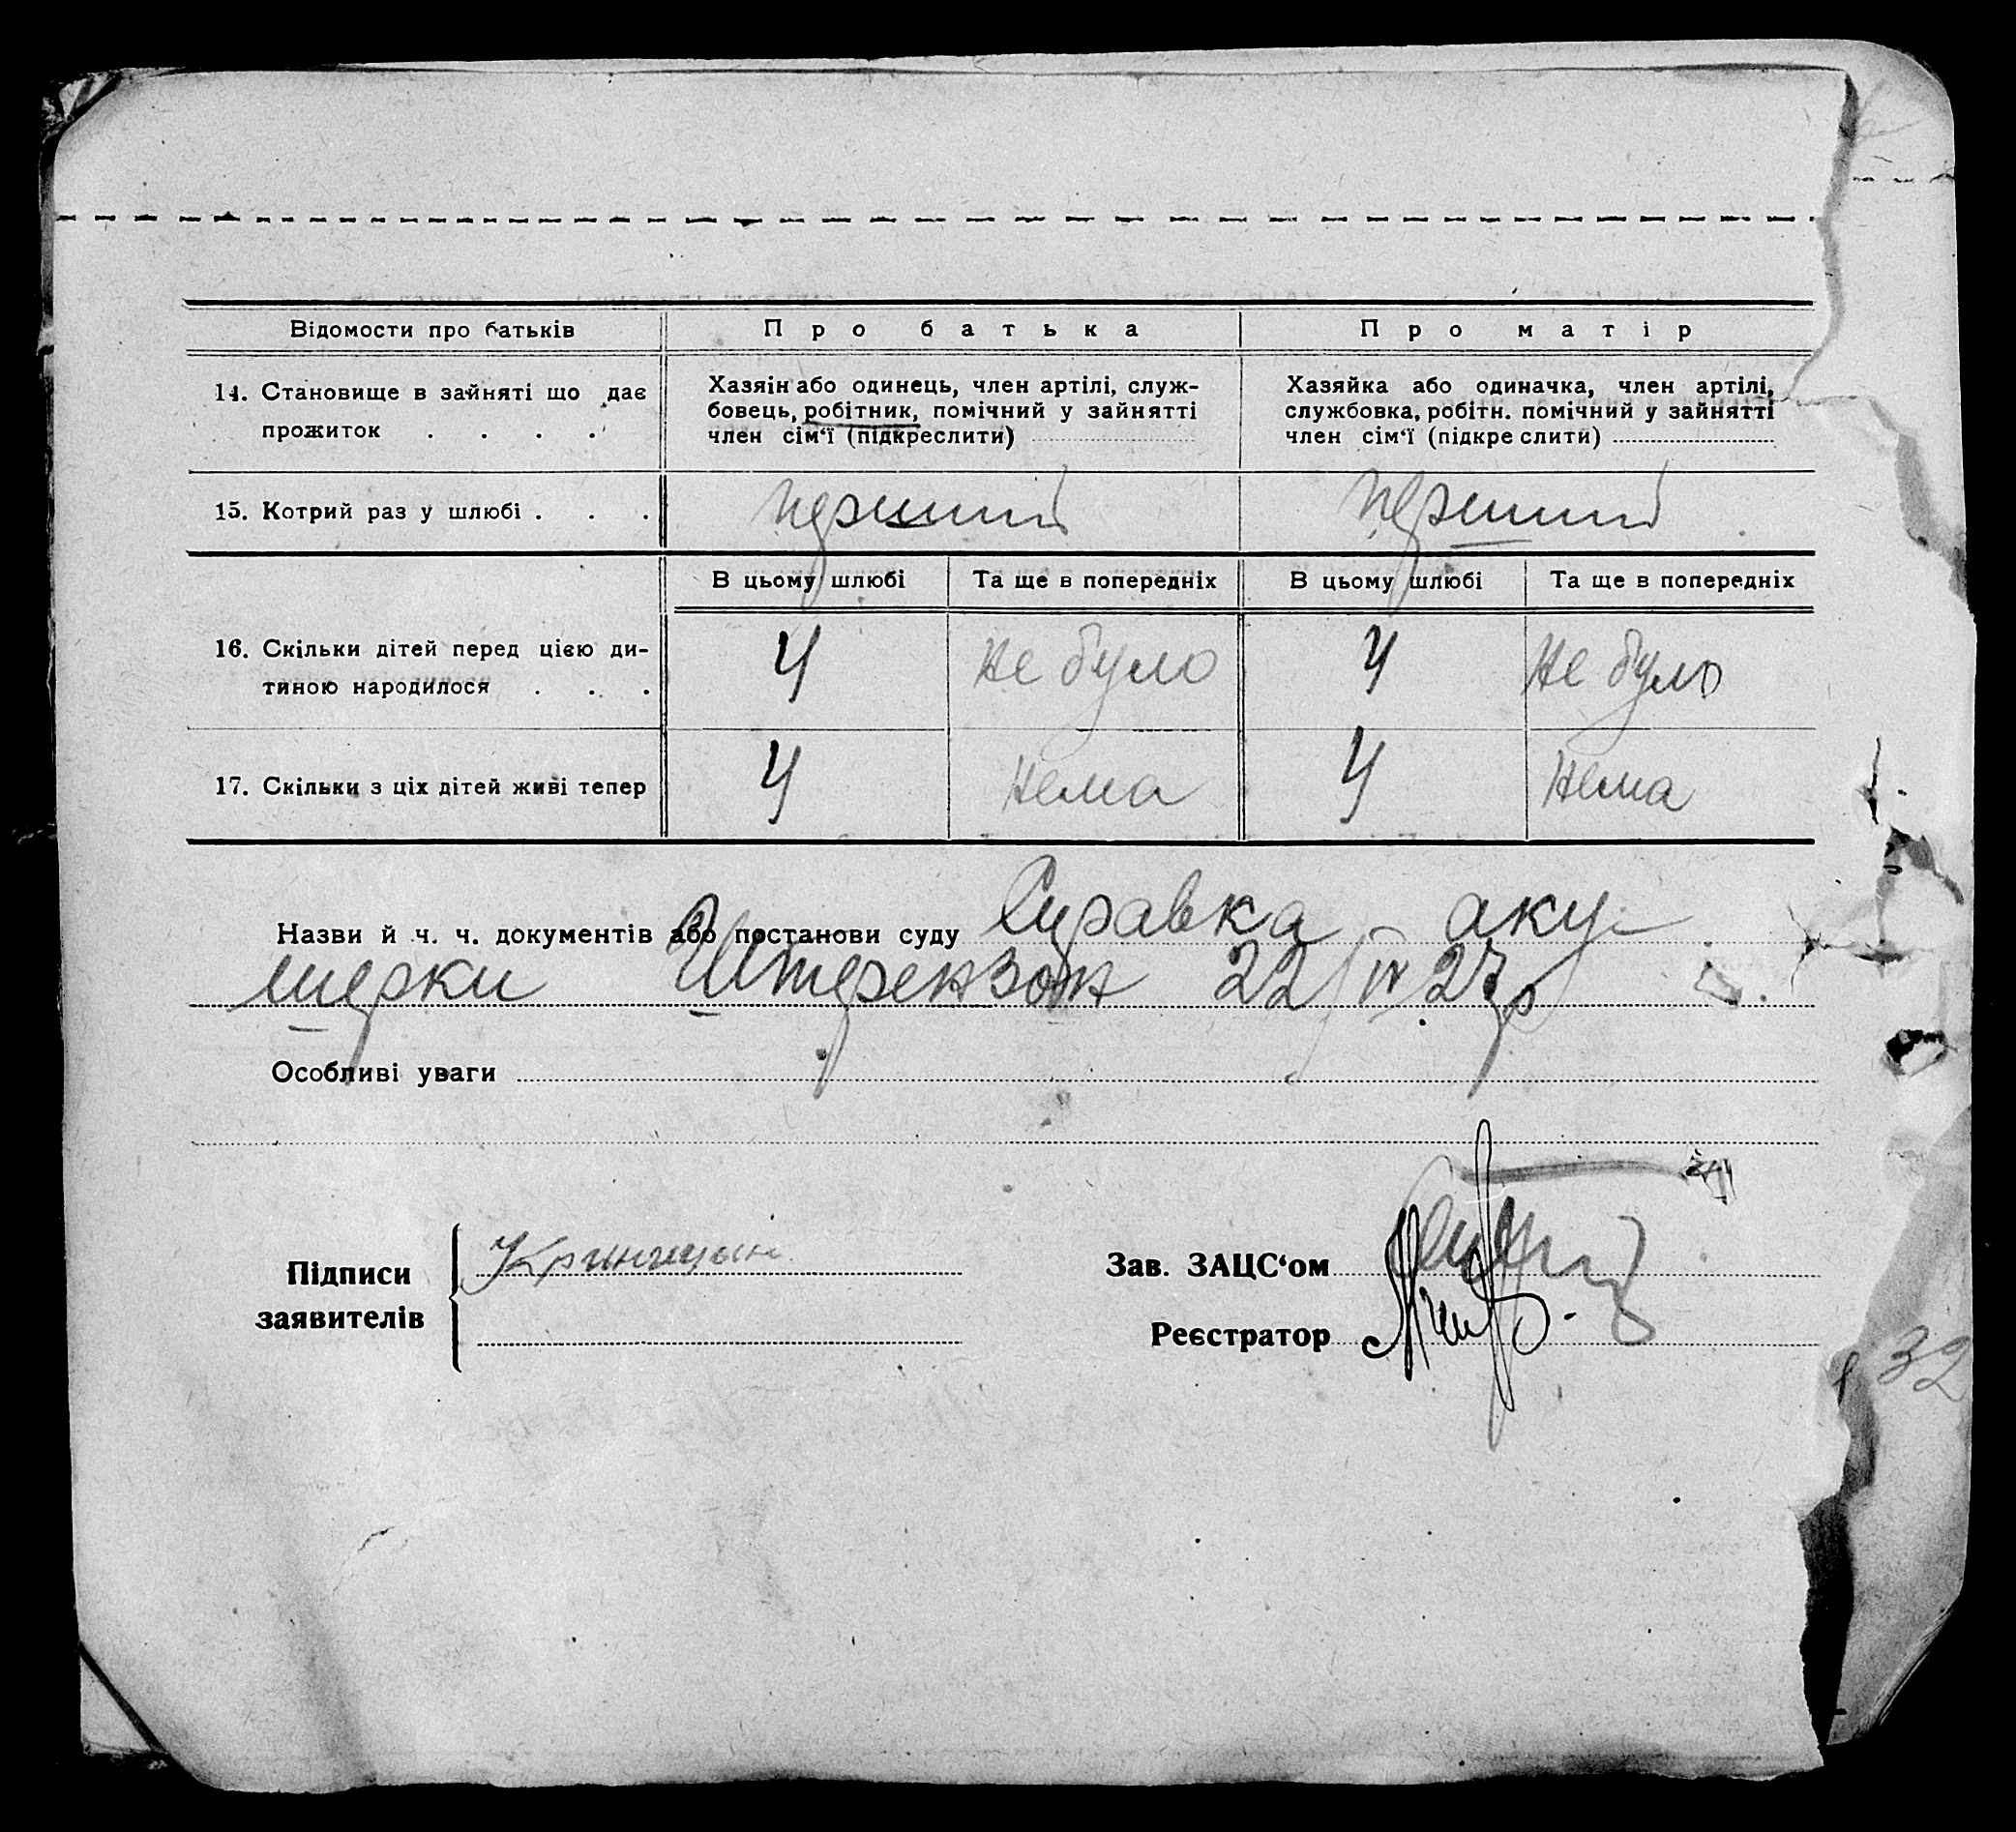 Відомости про батьків
Про батька
Про матір
14. Становище в зайняті що дає
прожиток . . . .
Хазяін або одинець, член артілі, служ-
бовець, робітник, помічний у зайнятті
член сім‘ї (підкреслити)
Хазяйка або одиначка, член артілі,
службовка, робітн. помічний у зайнятті
член сім‘ї (підкреслити)
15. Котрий раз у шлюбі . . .
перший
перший
В цьому шлюбі
Та ще в попередніх
В цьому шлюбі
Та ще в попередніх
16. Скільки дітей перед цією ди-
тиною народилося . . .
4
не було
4
не було
17. Скільки з ціх дітей живі тепер
4
нема
4
нема
Назви й ч. ч. документів або постанови суду Справка аку-
шерки Штерензон 22/IV 27р
Особливі уваги
Підписи
заявителів
Зав. ЗАЦС‘ом
Реєстратор
32